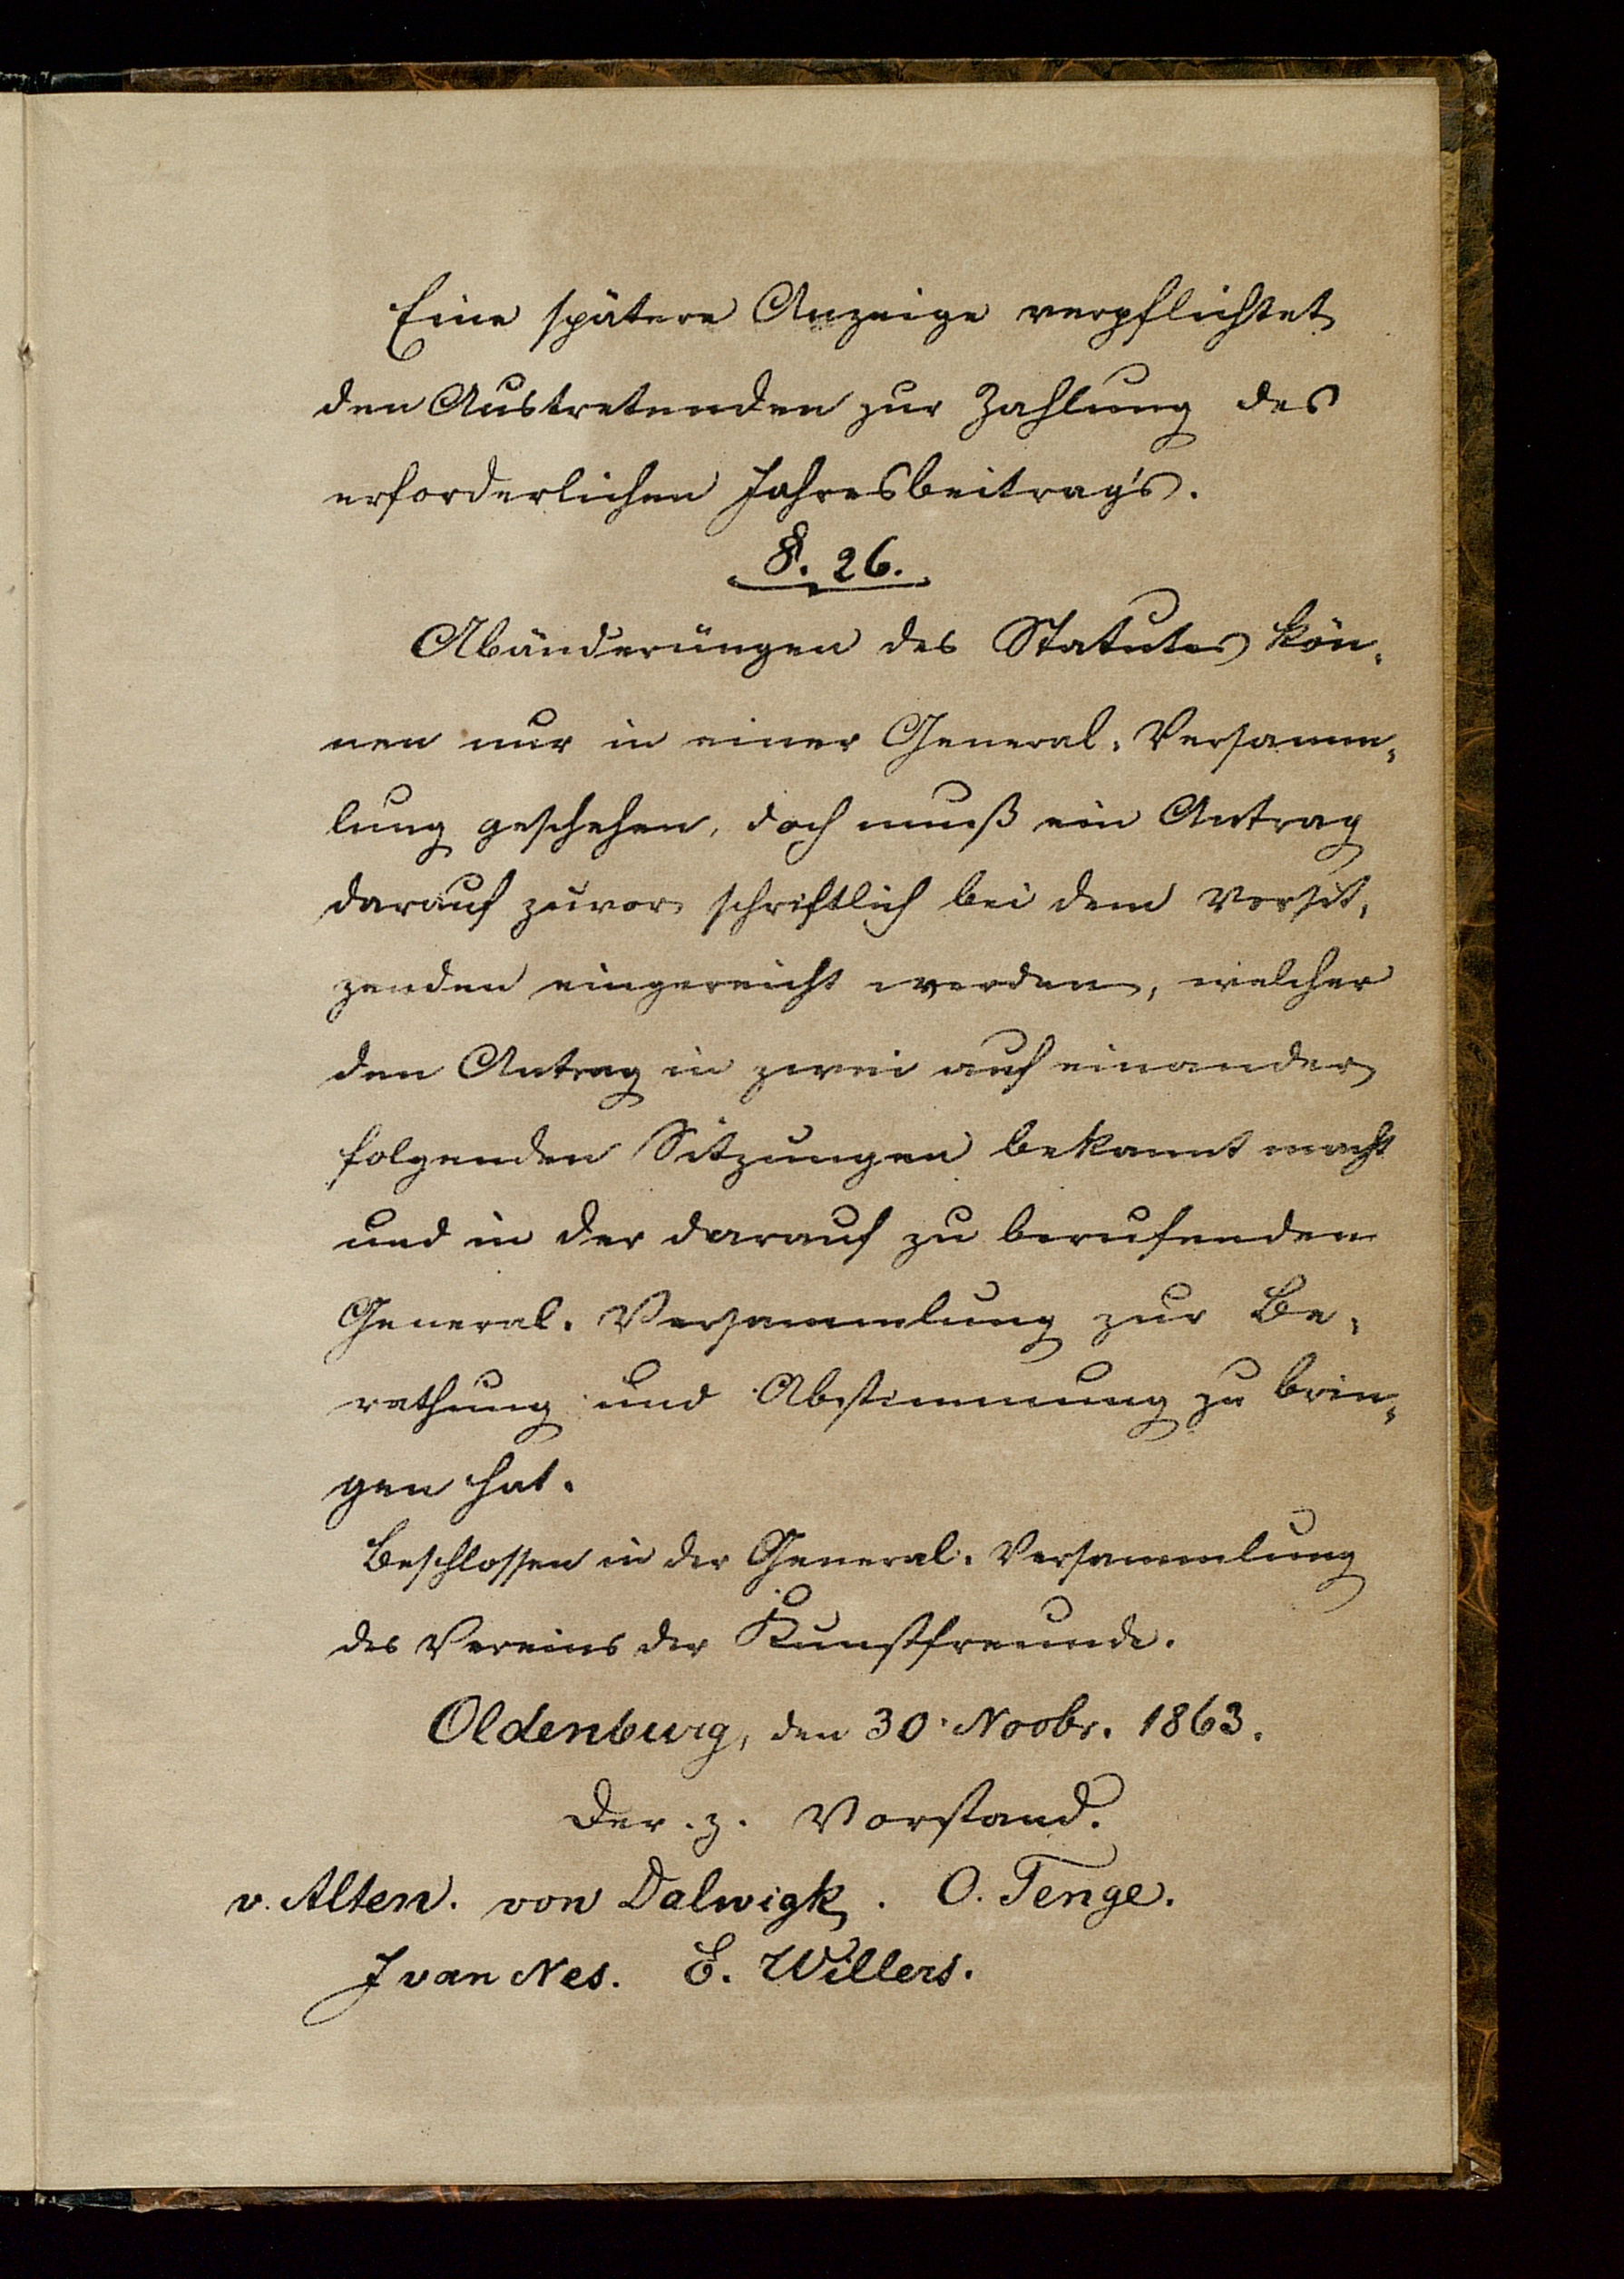 Eine spätere Anzeige verpflichtet
den Austretenden zur Zahlung des
erforderlichen Jahresbeitrag's.
§. 26.
Abänderungen des Statutes kön-
nen nur in einer General-Versamm-
lung geschehen, doch muß ein Antrag
darauf zuvor schriftlich bei dem Vorsit-
zenden eingereicht werden, welcher
den Antrag in zwei auf einander
folgenden Sitzungen bekannt macht
und in der darauf zu berufenden
General-Versammlung zur Be-
rathung und Abstimmung zu brin-
gen hat.
Beschlossen in der General-Versammlung
des Vereins der Kunstfreunde.
Oldenburg, den 30. Novbr. 1863.
Der. z. Vorstand.
v. Alten. von Dalwigk. O. Tenge.
J van Nes. E. Willers.